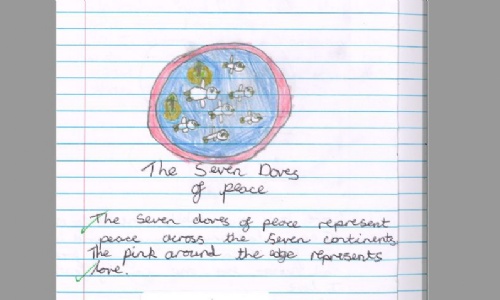 The Seven Doves
of peace
The seven doves of peace represent
peace across the seven continents
The pink around the edge represents
love.